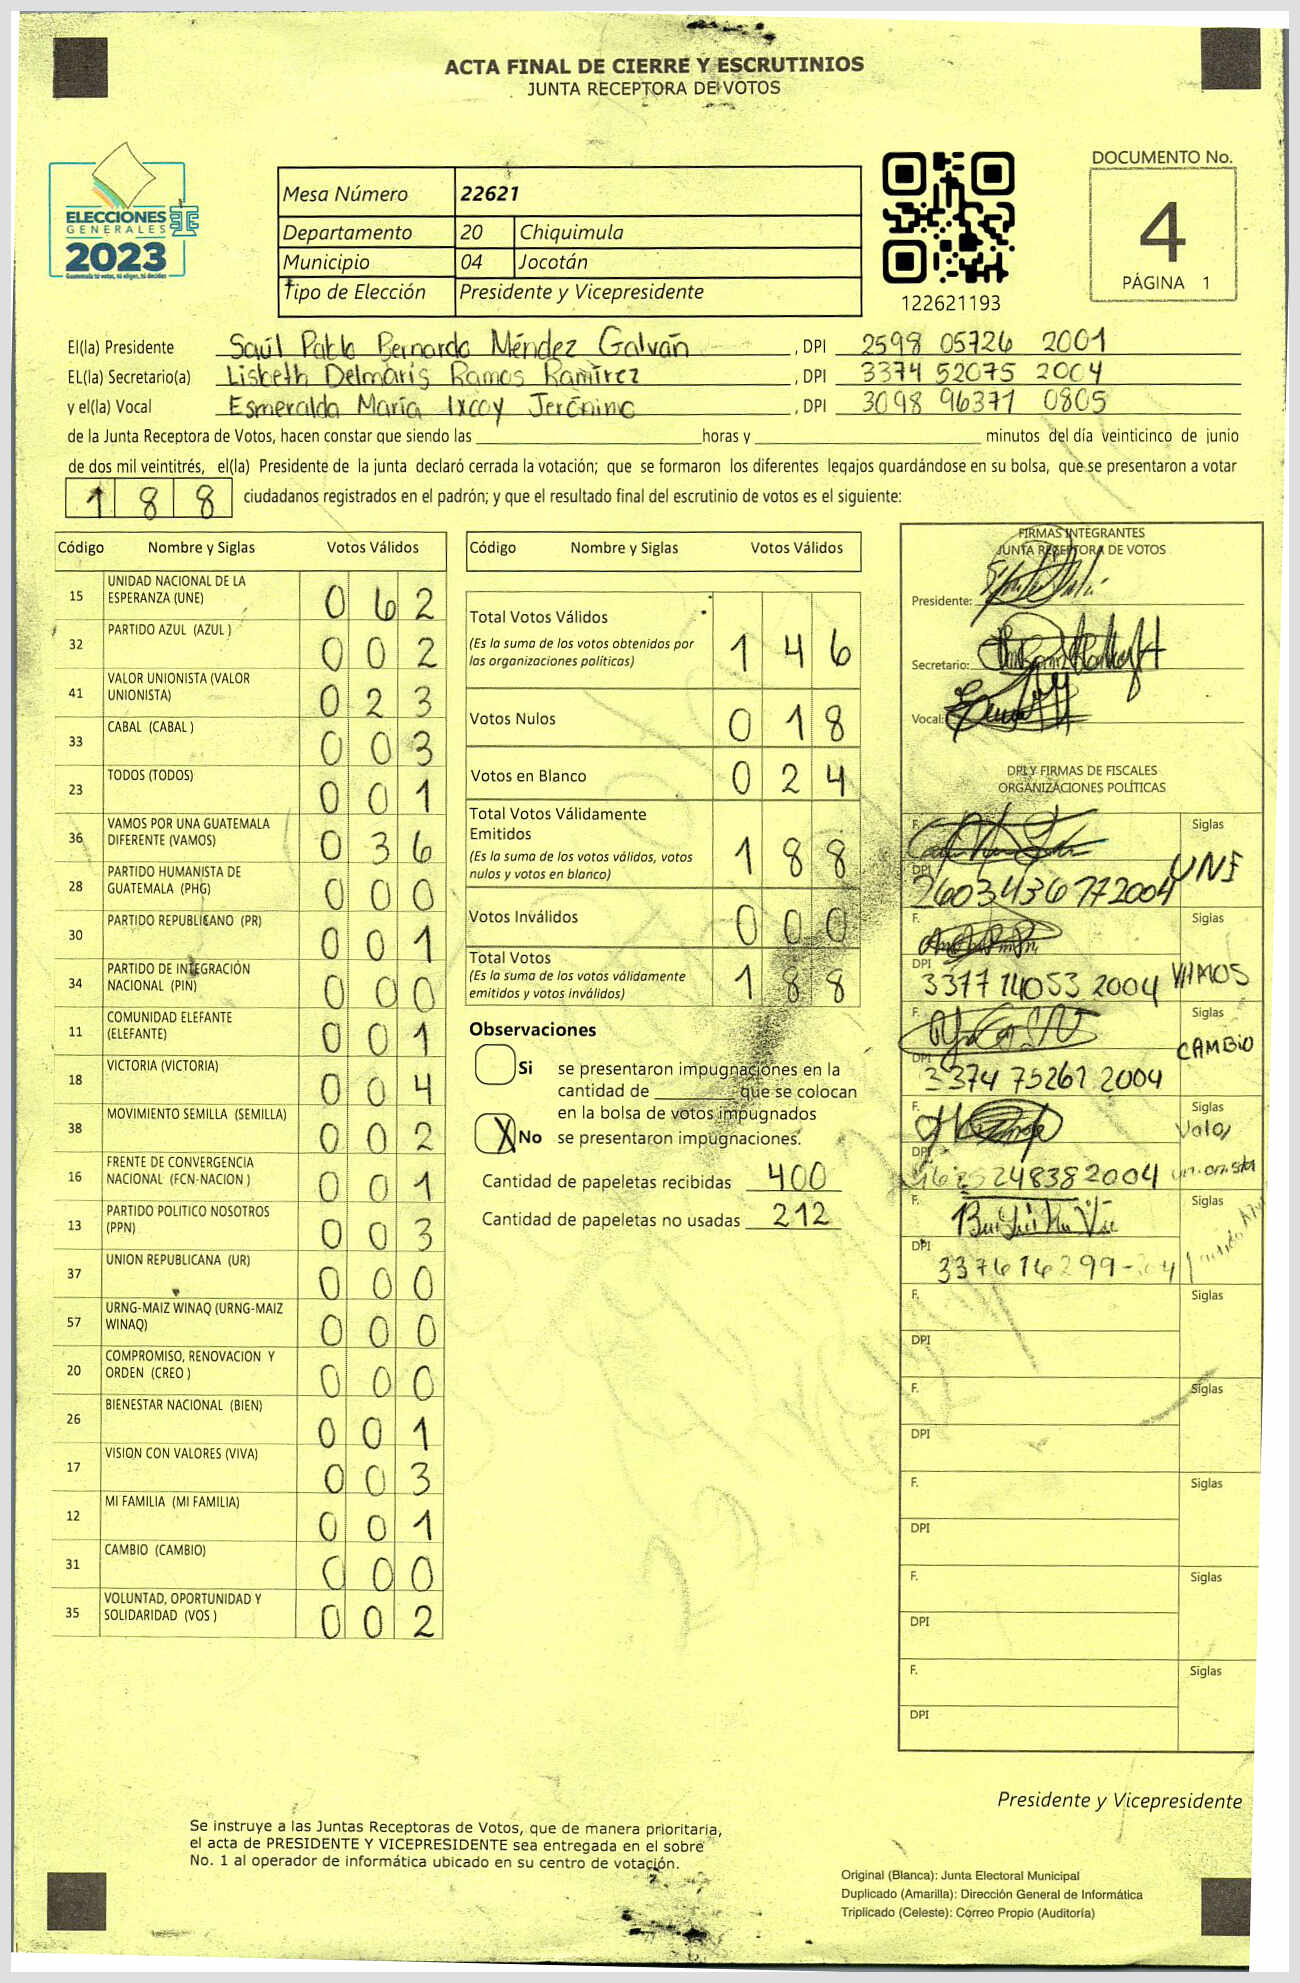 ACTA FINAL DE CIERRE Y ESCRUTINIOS
JUNTA RECEPTORA DE VOTOS
ELECCIONES
GENERALES
2023
Guatemala tú votas, tú eliges, tú decides
Mesa Número 22621
Departamento 20 Chiquimula
Municipio 04 Jocotán
Tipo de Elección Presidente y Vicepresidente
122621193
DOCUMENTO No.
4
PÁGINA 1
El(la) Presidente Saúl Pablo Bernardo Méndez Galván , DPI 2598 05726 2001
EL(la) Secretario(a) Lisbeth Delmaris Ramos Ramírez , DPI 3374 52075 2004
y el(la) Vocal Esmeralda María Ixcoy Jerónimo , DPI 3098 96371 0805
de la Junta Receptora de Votos, hacen constar que siendo las horas y minutos del día veinticinco de junio
de dos mil veintitrés, el(la) Presidente de la junta declaró cerrada la votación; que se formaron los diferentes legajos guardándose en su bolsa, que se presentaron a votar
188 ciudadanos registrados en el padrón; y que el resultado final del escrutinio de votos es el siguiente:
Código Nombre y Siglas Votos Válidos
15 UNIDAD NACIONAL DE LA ESPERANZA (UNE) 0 6 2
32 PARTIDO AZUL (AZUL ) 0 0 2
41 VALOR UNIONISTA (VALOR UNIONISTA) 0 2 3
33 CABAL (CABAL ) 0 0 3
23 TODOS (TODOS) 0 0 1
36 VAMOS POR UNA GUATEMALA DIFERENTE (VAMOS) 0 3 6
28 PARTIDO HUMANISTA DE GUATEMALA (PHG) 0 0 0
30 PARTIDO REPUBLICANO (PR) 0 0 1
34 PARTIDO DE INTEGRACIÓN NACIONAL (PIN) 0 0 0
11 COMUNIDAD ELEFANTE (ELEFANTE) 0 0 1
18 VICTORIA (VICTORIA) 0 0 4
38 MOVIMIENTO SEMILLA (SEMILLA) 0 0 2
16 FRENTE DE CONVERGENCIA NACIONAL (FCN-NACION ) 0 0 1
13 PARTIDO POLITICO NOSOTROS (PPN) 0 0 3
37 UNION REPUBLICANA (UR) 0 0 0
57 URNG-MAIZ WINAQ (URNG-MAIZ WINAQ) 0 0 0
20 COMPROMISO, RENOVACION Y ORDEN (CREO ) 0 0 0
26 BIENESTAR NACIONAL (BIEN) 0 0 1
17 VISION CON VALORES (VIVA) 0 0 3
12 MI FAMILIA (MI FAMILIA) 0 0 1
31 CAMBIO (CAMBIO) 0 0 0
35 VOLUNTAD, OPORTUNIDAD Y SOLIDARIDAD (VOS ) 0 0 2
Código Nombre y Siglas Votos Válidos
Total Votos Válidos
(Es la suma de los votos obtenidos por las organizaciones políticas) 1 4 6
Votos Nulos 0 1 8
Votos en Blanco 0 2 4
Total Votos Válidamente Emitidos
(Es la suma de los votos válidos, votos nulos y votos en blanco) 1 8 8
Votos Inválidos 0 0 0
Total Votos
(Es la suma de los votos válidamente emitidos y votos inválidos) 1 8 8
Observaciones
Si se presentaron impugnaciones en la
cantidad de que se colocan
en la bolsa de votos impugnados
X No se presentaron impugnaciones.
Cantidad de papeletas recibidas 400
Cantidad de papeletas no usadas 212
FIRMAS INTEGRANTES
JUNTA RECEPTORA DE VOTOS
Presidente:
Secretario:
Vocal:
DPI Y FIRMAS DE FISCALES
ORGANIZACIONES POLÍTICAS
F. Siglas
DPI 2603436772004 UNE
F. Siglas
DPI 3377 14053 2004 VAMOS
F. Siglas
DPI 3374 75261 2004 CAMBIO
F. Siglas
DPI 2004 Valor unionista
F. Siglas
DPI Partido Azul
F. Siglas
DPI
F. Siglas
DPI
F. Siglas
DPI
F. Siglas
DPI
F. Siglas
DPI
Presidente y Vicepresidente
Se instruye a las Juntas Receptoras de Votos, que de manera prioritaria,
el acta de PRESIDENTE Y VICEPRESIDENTE sea entregada en el sobre
No. 1 al operador de informática ubicado en su centro de votación.
Original (Blanca): Junta Electoral Municipal
Duplicado (Amarilla): Dirección General de Informática
Triplicado (Celeste): Correo Propio (Auditoría)